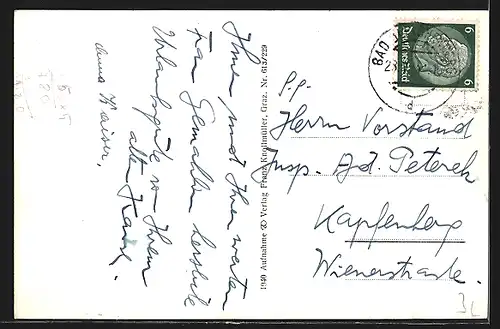 Ihnen und Ihrer werten
Frau Gemahlin herzliche
Urlaubsgrüße von Ihrem
alten Franz.
Anna Kaiser.
1940 Aufnahme Verlag Franz Knollmüller, Graz. Nr. 613/229
BAD
Deutsches Reich
6
6
P.P.
Herrn Vorstand
Insp. Ad. Peterek
Kapfenberg
Wienerstraße.
3L